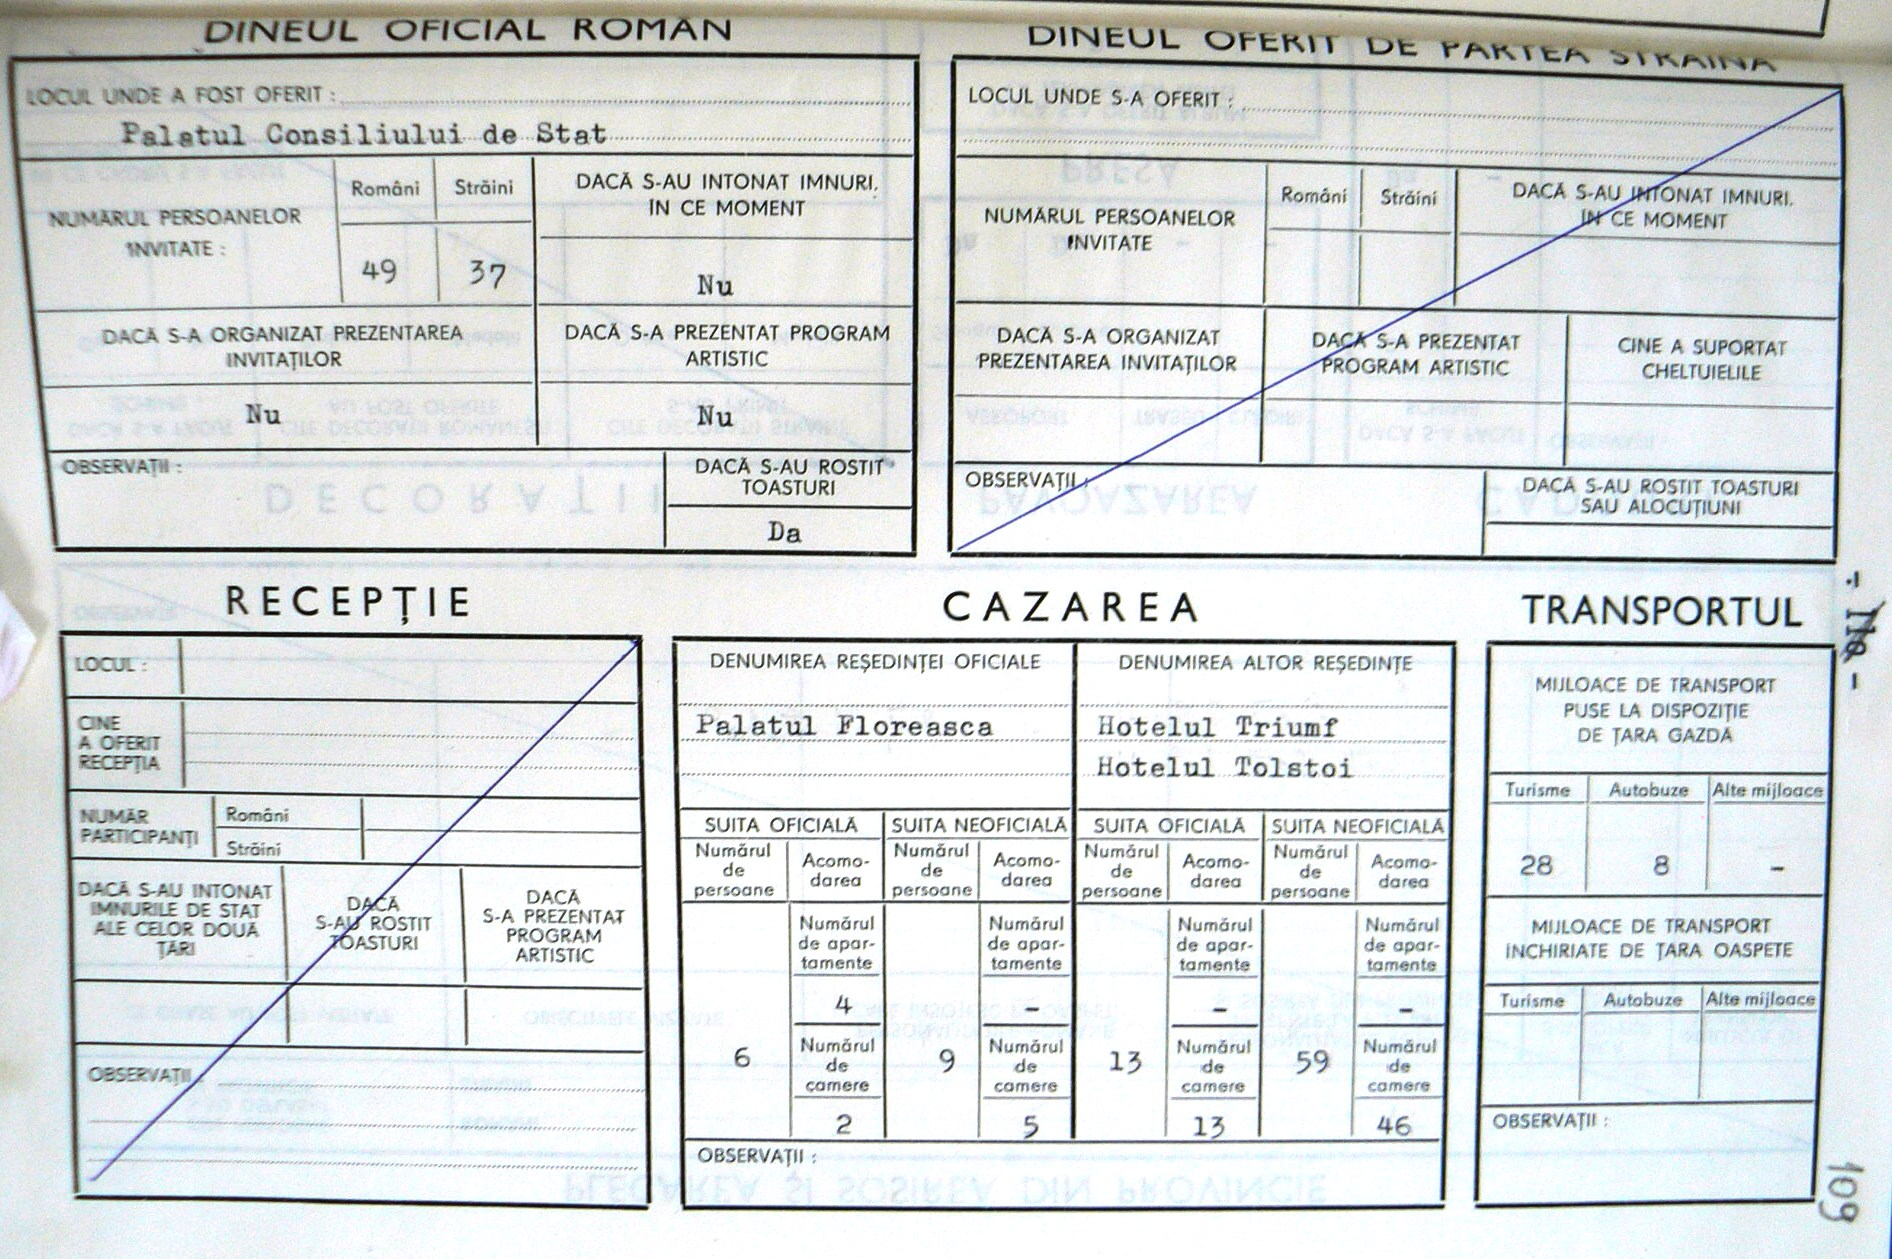 DINEUL OFICIAL ROMÂN
LOCUL UNDE A FOST OFERIT :
Palatul Consiliului de Stat
NUMĂRUL PERSOANELOR
INVITATE :
Români
Străini
49
37
DACĂ S-AU INTONAT IMNURI,
IN CE MOMENT
Nu
DACĂ S-A ORGANIZAT PREZENTAREA
INVITAȚILOR
Nu
DACĂ S-A PREZENTAT PROGRAM
ARTISTIC
Nu
OBSERVAȚII :
DACĂ S-AU ROSTIT
TOASTURI
Da
DINEUL OFERIT DE PARTEA STRĂINĂ
LOCUL UNDE S-A OFERIT :
NUMĂRUL PERSOANELOR
INVITATE
Români
Străini
DACĂ S-AU INTONAT IMNURI,
IN CE MOMENT
DACĂ S-A ORGANIZAT
PREZENTAREA INVITAȚILOR
DACĂ S-A PREZENTAT
PROGRAM ARTISTIC
CINE A SUPORTAT
CHELTUIELILE
OBSERVAȚII :
DACĂ S-AU ROSTIT TOASTURI
SAU ALOCUȚIUNI
RECEPȚIE
LOCUL :
CINE
A OFERIT
RECEPȚIA
NUMĂR
PARTICIPANȚI
Români
Străini
DACĂ S-AU INTONAT
IMNURILE DE STAT
ALE CELOR DOUĂ
ȚĂRI
DACĂ
S-AU ROSTIT
TOASTURI
DACĂ
S-A PREZENTAT
PROGRAM
ARTISTIC
OBSERVAȚII :
CAZAREA
DENUMIREA REȘEDINȚEI OFICIALE
Palatul Floreasca
DENUMIREA ALTOR REȘEDINȚE
Hotelul Triumf
Hotelul Tolstoi
SUITA OFICIALĂ
SUITA NEOFICIALĂ
SUITA OFICIALĂ
SUITA NEOFICIALĂ
Numărul
de
persoane
Acomo-
darea
Numărul
de
persoane
Acomo-
darea
Numărul
de
persoane
Acomo-
darea
Numărul
de
persoane
Acomo-
darea
6
Numărul
de apar-
tamente
4
Numărul
de
camere
2
9
Numărul
de apar-
tamente
-
Numărul
de
camere
5
13
Numărul
de apar-
tamente
-
Numărul
de
camere
13
59
Numărul
de apar-
tamente
-
Numărul
de
camere
46
OBSERVAȚII :
TRANSPORTUL
MIJLOACE DE TRANSPORT
PUSE LA DISPOZIȚIE
DE ȚARA GAZDĂ
Turisme
Autobuze
Alte mijloace
28
8
-
MIJLOACE DE TRANSPORT
INCHIRIATE DE ȚARA OASPETE
Turisme
Autobuze
Alte mijloace
OBSERVAȚII :
109